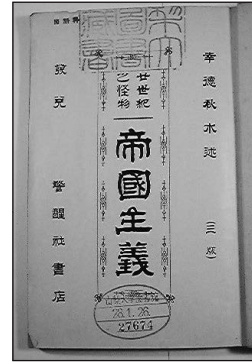 幸德秋水述 (三版)
廿世紀
之怪物
帝國主義
發兌 警醒社書店
28.1.26
27674